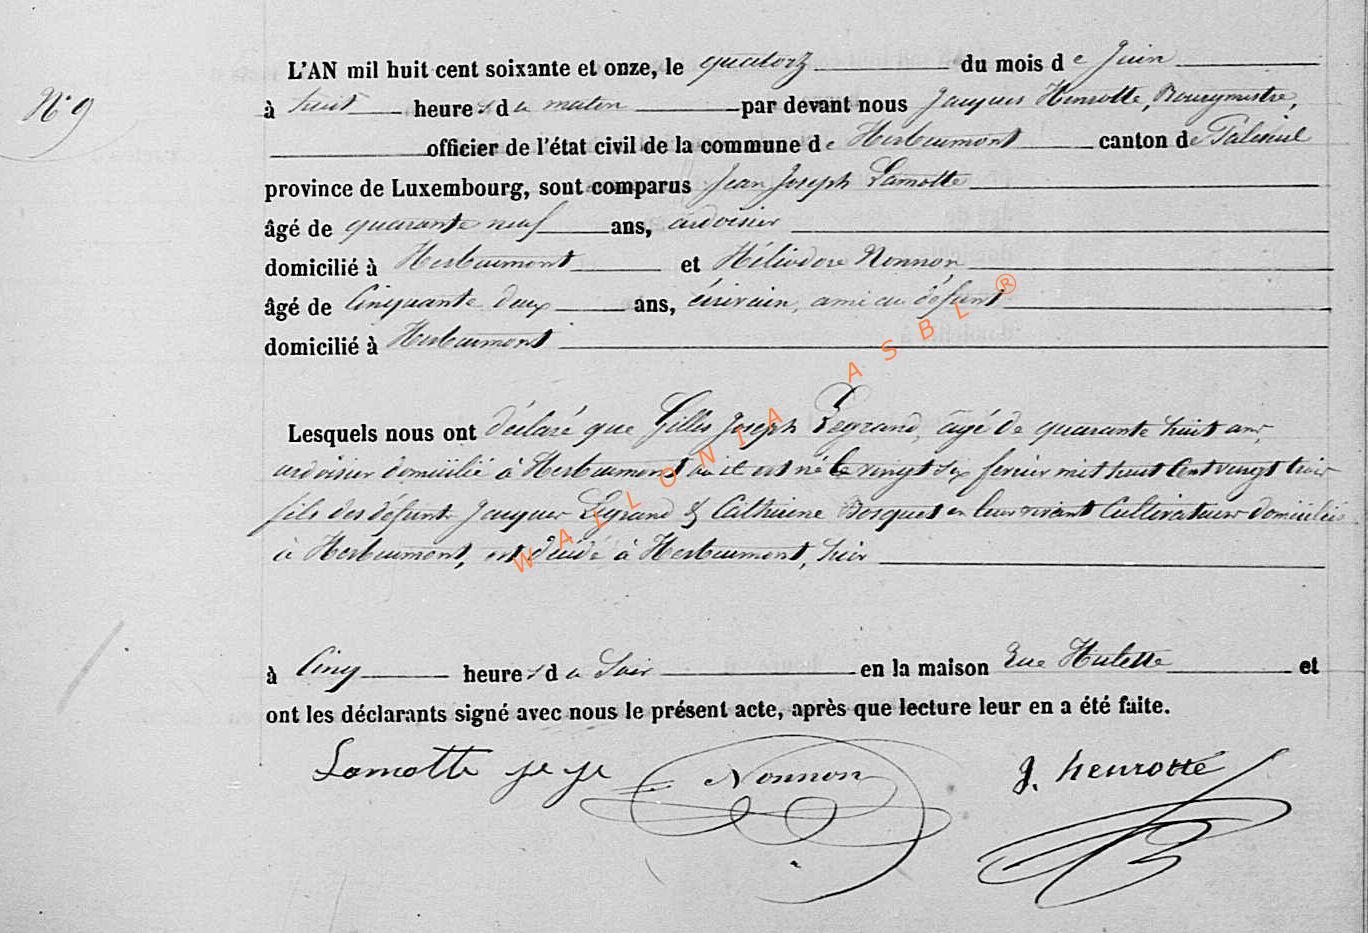 L'AN mil huit cent soixante et onze, le quatorz du mois de Juin
N° 9
à huit heures du matin par devant nous Jacques Henrotte, Bourgmestre,
officier de l'état civil de la commune de Herbeumont canton de Paliseul
province de Luxembourg, sont comparus Jean Joseph Lamotte
âgé de quarante neuf ans, ardoisier
domicilié à Herbeumont et Héliodore Nonnon
âgé de Cinquante deux ans, écrivain, ami du défunt
domicilié à Herbeumont
Lesquels nous ont déclaré que Gilles Joseph Legrand, âgé de quarante huit ans,
ardoisier domicilié à Herbeumont où il est né le vingt six fevrier mil huit Cent vingt trois
fils des défunts Jacques Legrand & Catherine Bosquet en leur vivant Cultivateurs domiciliés
à Herbeumont, est décédé à Herbeumont, hier
à Cinq heures du Soir en la maison Rue Hulette et
ont les déclarants signé avec nous le présent acte, après que lecture leur en a été faite.
Lamotte Nonnon J. henrotte
WALLONIA ASBL ®